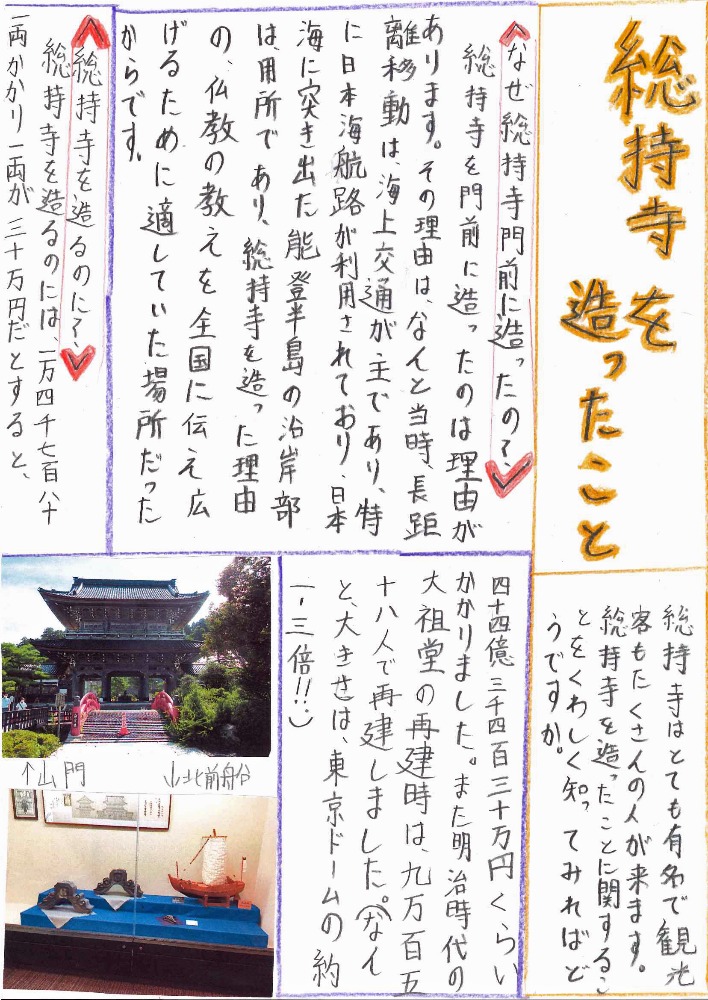 総持寺を
造ったこと
総持寺はとても有名で観光
客もたくさんの人が来ます。
総持寺を造ったことに関するこ
とをくわしく知ってみればど
うですか。
なぜ総持寺門前に造ったの?
総持寺を門前に造ったのは理由が
あります。その理由は、なんと当時、長距
離移動は、海上交通が主であり、特
に日本海航路が利用されており、日本
海に突き出た能登半島の沿岸部
は用所であり、総持寺を造った理由
の、仏教の教えを全国に伝え広
げるために適していた場所だった
からです。
総持寺を造るのに?
総持寺を造るのには、一万四千七百八十
一両かかり一両が三十万円だとすると、
四十四億三千四百三十万円くらい
かかりました。また明治時代の
大祖堂の再建時は、九万百五
十八人で再建しました。(なん
と、大きさは、東京ドームの約
一・三倍!!)
↑山門
↓北前船